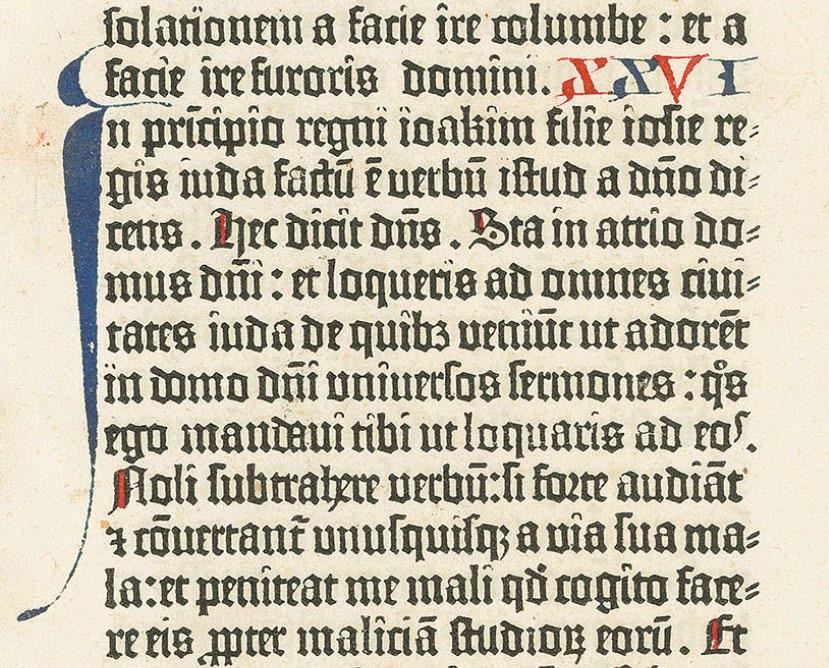 solationem a facie ire columbe : et a
facie ire furoris domini. XXVI
In prīcipio regni ioakim filie iosie re⸗
gis iuda factū ē verbū istud a dn̄o di⸗
cens . Hec dicit dn̄s . Sta in atrio do⸗
mus dn̄i : et loqueris ad omnes ciui⸗
tates iuda de quibꝫ veniūt ut adorēt
in domo dn̄i universos sermones : qͦs
ego mandaui tibi ut loquaris ad eos.
Noli subtrahere verbū: si forte audiāt
⁊ cōvertant᷑ vnusquisqꝫ a via sua ma⸗
la: et peniteat me mali qđ cogito face⸗
re eis ꝓpter maliciā studioꝝ eorū . Et